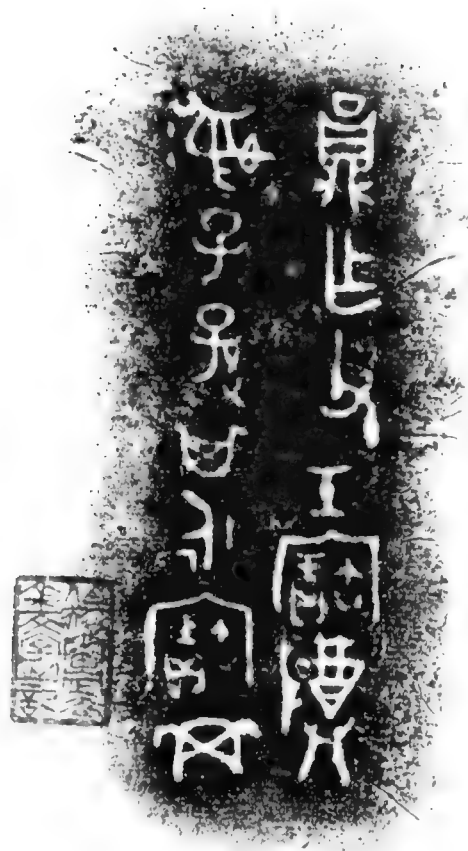 員乍父壬寶尊
彝子孫其永寶